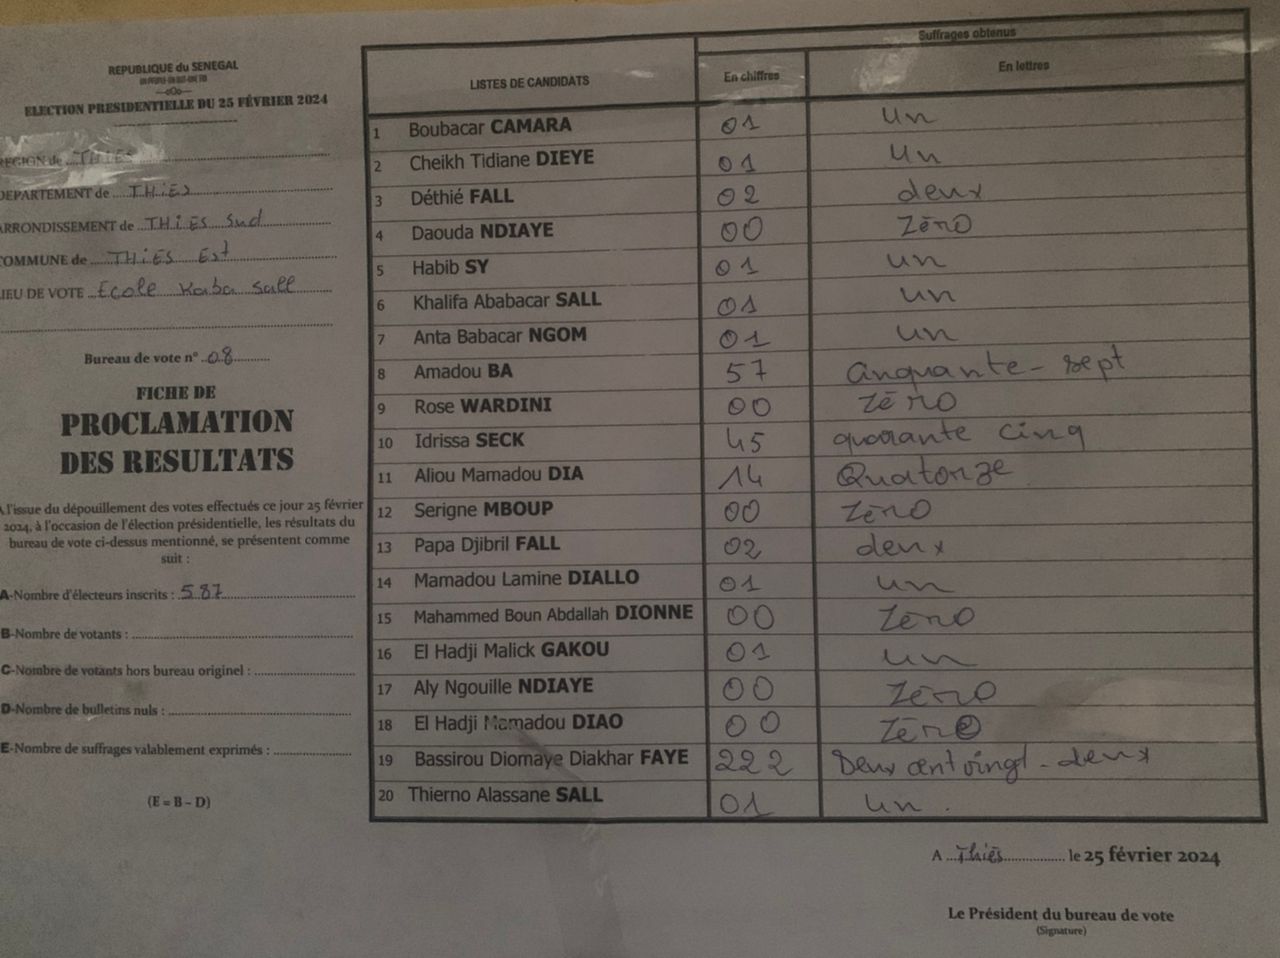 REPUBLIQUE du SENEGAL
ELECTION PRESIDENTIELLE DU 25 FÉVRIER 2024
REGION de THIES
DEPARTEMENT de THIES
ARRONDISSEMENT de THIES Sud
COMMUNE de THIES Est
LIEU DE VOTE Ecole Kaba Sall
Bureau de vote n° 08
FICHE DE
PROCLAMATION
DES RESULTATS
A l'issue du dépouillement des votes effectués ce jour 25 février
2024, à l'occasion de l'élection présidentielle, les résultats du
bureau de vote ci-dessus mentionné, se présentent comme
suit :
A-Nombre d'électeurs inscrits : 587
B-Nombre de votants :
C-Nombre de votants hors bureau originel :
D-Nombre de bulletins nuls :
E-Nombre de suffrages valablement exprimés :
(E = B - D)
LISTES DE CANDIDATS
Suffrages obtenus
En chiffres En lettres
1 Boubacar CAMARA 01 un
2 Cheikh Tidiane DIEYE 01 un
3 Déthié FALL 02 deux
4 Daouda NDIAYE 00 Zéro
5 Habib SY 01 un
6 Khalifa Ababacar SALL 01 un
7 Anta Babacar NGOM 01 un
8 Amadou BA 57 cinquante-sept
9 Rose WARDINI 00 Zéro
10 Idrissa SECK 45 quarante cinq
11 Aliou Mamadou DIA 14 Quatorze
12 Serigne MBOUP 00 Zéro
13 Papa Djibril FALL 02 deux
14 Mamadou Lamine DIALLO 01 un
15 Mahammed Boun Abdallah DIONNE 00 Zéro
16 El Hadji Malick GAKOU 01 un
17 Aly Ngouille NDIAYE 00 Zéro
18 El Hadji Mamadou DIAO 00 Zéro
19 Bassirou Diomaye Diakhar FAYE 222 Deux cent vingt-deux
20 Thierno Alassane SALL 01 un.
A Thiès le 25 février 2024
Le Président du bureau de vote
(Signature)